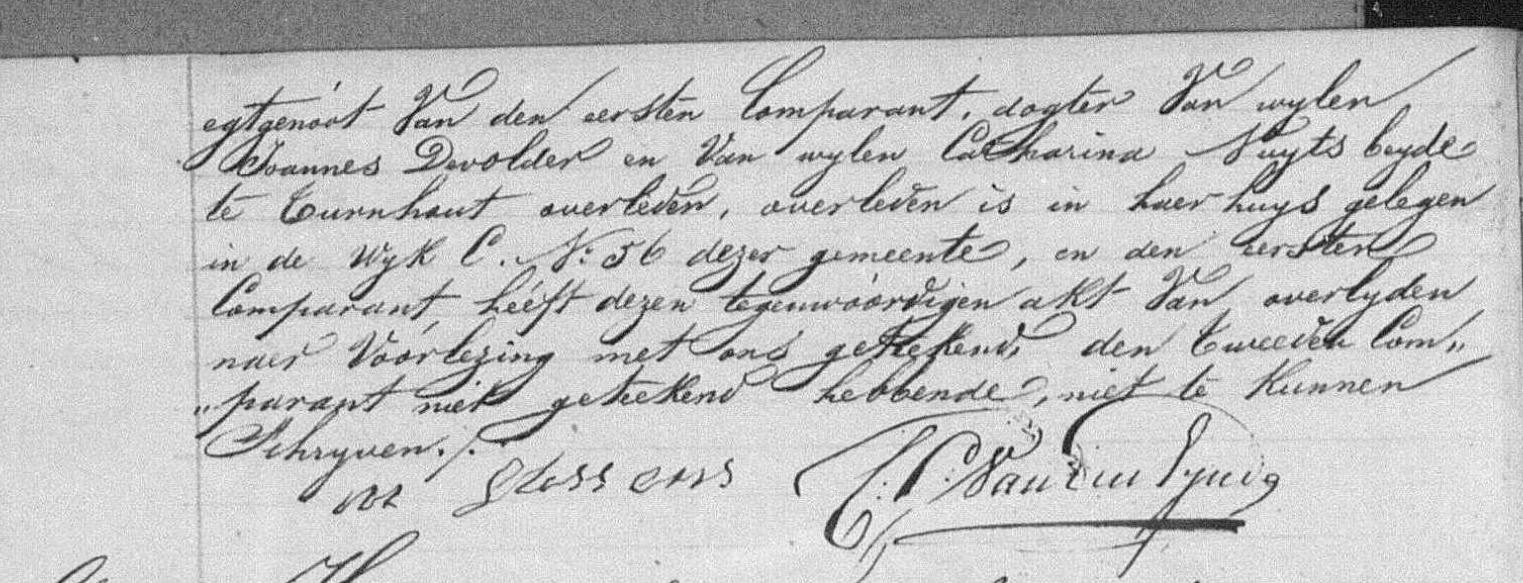 egtgenóót Van den eersten Comparant, dogter Van wylen
Joannes Devolder en Van wylen Catharina Nuyts beyde
te Turnhout overleden, overleden is in haer huys gelegen
in de Wyk C. No: 56 dezer gemeente, en den eersten
Comparant, hééft dezen tegenwóórdigen akt Van overlyden
naer Vóórlezing met ons geteekend, den Tweeden Com„
„parant niet geteekend hebbende, niet te Kunnen
Schryven./.